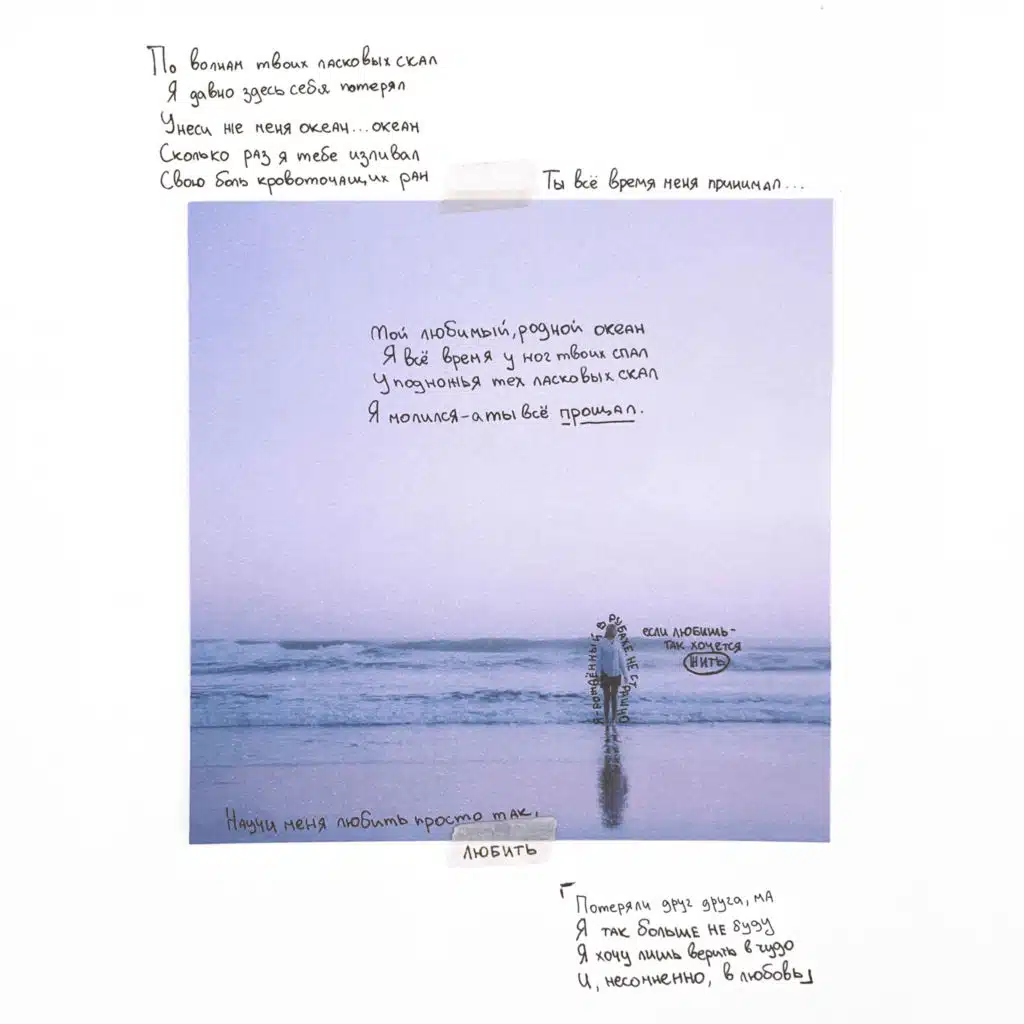 По волнам твоих ласковых скал
Я давно здесь себя потерял
Унеси же меня океан...океан
Сколько раз я тебе изливал
Свою боль кровоточащих ран
Ты всё время меня принимал...
Мой любимый, родной океан
Я всё время у ног твоих спал
У подножья тех ласковых скал
Я молился-а ты всё прощал.
Я-рождённый в рубахе не страшно
если любишь-
так хочется
жить
Научи меня любить просто так,
любить
Потеряли друг друга, ма
Я так больше не буду
Я хочу лишь верить в чудо
И, несомненно, в любовь